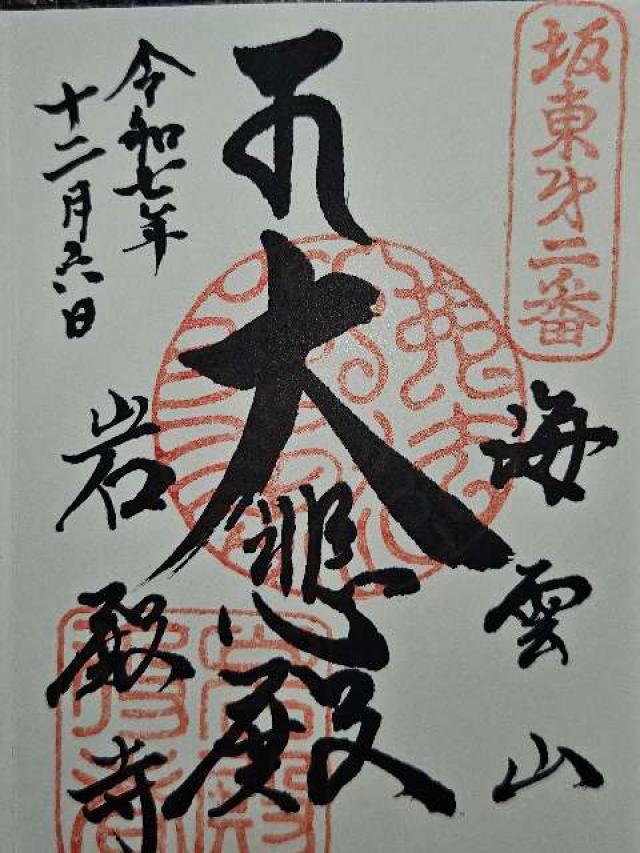 坂東㐧二番
海雲山
大悲殿
令和七年
十二月六日
岩殿寺